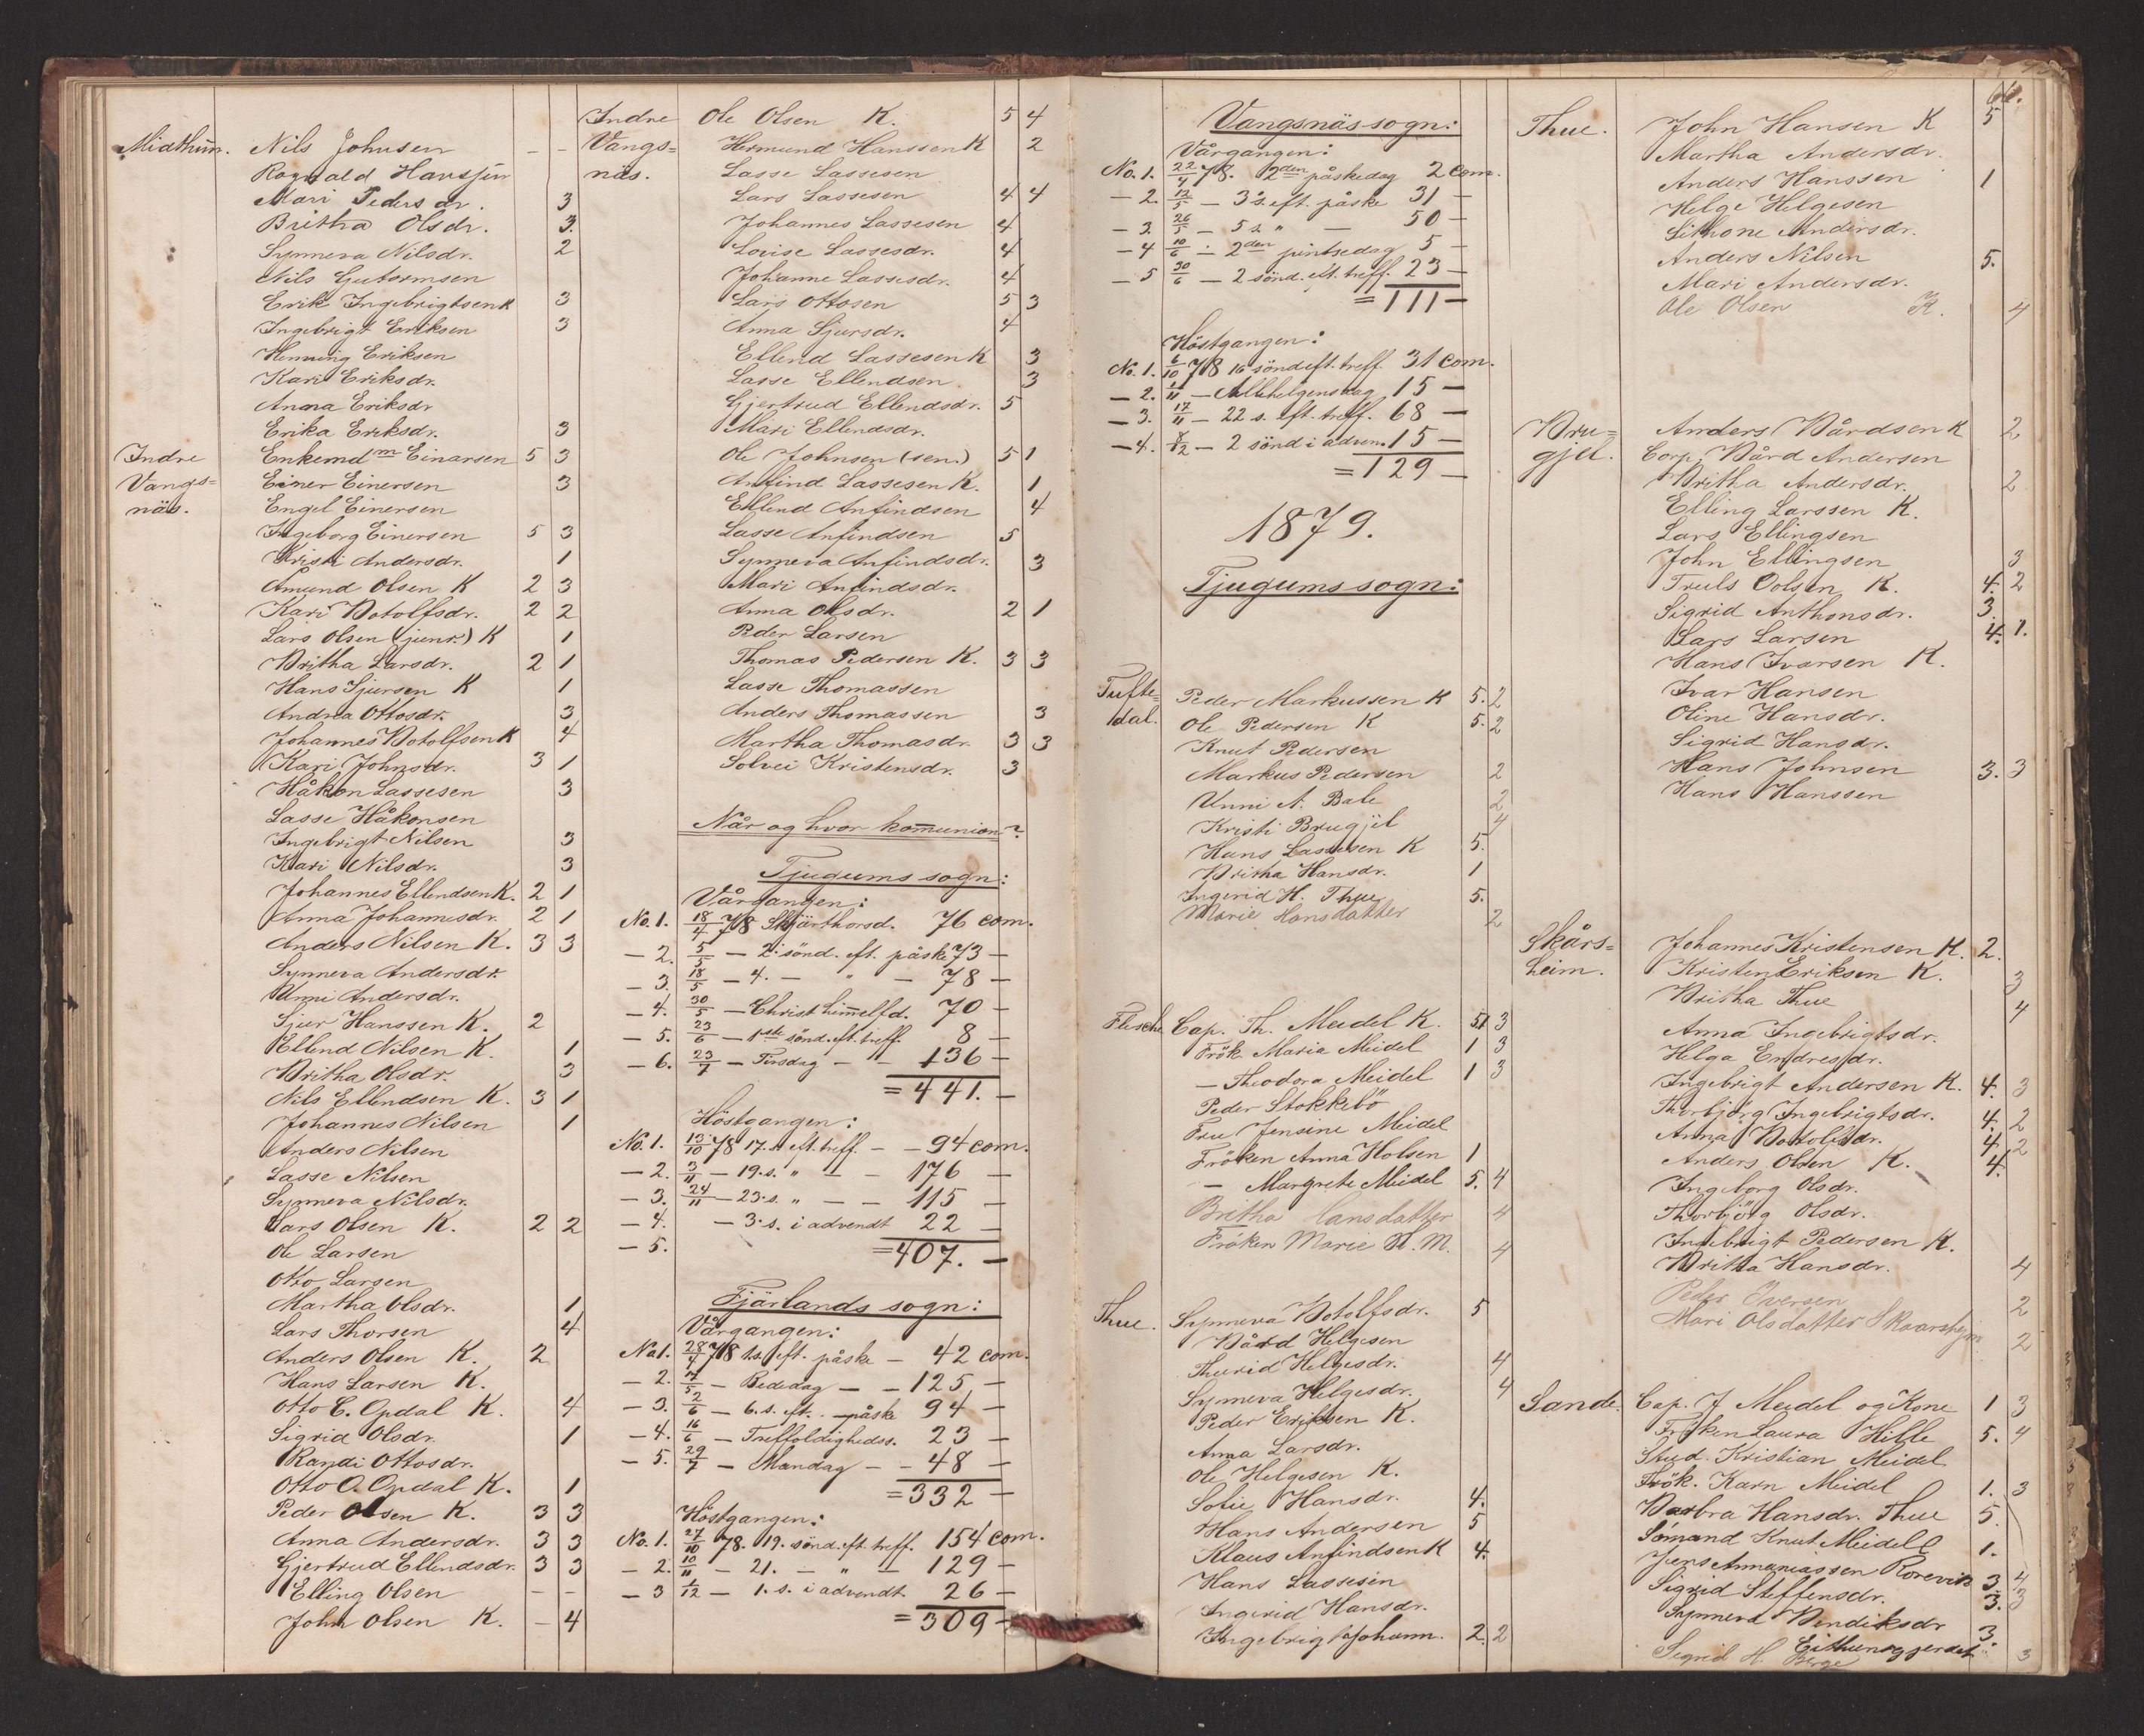 Midthun. Nils Johnsen - -
Rognald Hansjür
Mari Pedersdr. 3
Britha Olsdr. 3.
Synneva Nilsdr. 2
Nils Gutormsen
Erik Ingebrigtsen K 3
Ingebrigt Eriksen 3
Henning Eriksen
Kari Eriksdr.
Anna Eriksdr
Erika Eriksdr. 3
Indre Enkemdm Einarsen 5 3
Vangs= Einer Einersen 3
näs. Engel Einersen
Ingeborg Einersen 5 3
Kristi Andersdr. 1
Amund Olsen K 2 3
Kari Botolfsdr. 2 2
Lars Olsen (junr.) K 1
Britha Larsdr. 2 1
Hans Sjursen K 1
Andrea Ottosdr. 3
Johannes Botolfsen K 4
Kari Johnsdr. 3 1
Håkon Lassesen 3
Lasse Håkonsen
Ingebrigt Nilsen 3
Kari Nilsdr. 3
Johannes Ellendsen K. 2 1
Anna Johannesdr. 2 1
Anders Nilsen K. 3 3
Synneva Andersdr.
Unni Andersdr.
Sjur Hanssen K. 2
Ellend Nilsen K. 1
Britha Olsdr. 3
Nils Ellendsen K. 3 1
Johannes Nilsen 1
Anders Nilsen
Lasse Nilsen
Synneva Nilsdr.
Lars Olsen K. 2 2
Ole Larsen
Otto Larsen
Martha Olsdr. 1
Lars Thorsen 4
Anders Olsen K. 2
Hans Larsen K.
Otto C. Opdal K. 4
Sigrid Olsdr. 1
Randi Ottosdr.
Otto O. Opdal K. 1
Peder Olsen K. 3 3
Anna Andersdr. 3 3
Gjertrud Ellendsdr. 3 3
Elling Olsen - -
John Olsen K. - 4
Indre Ole Olsen K. 5 4
Vangs= Hermund Hanssen K 2
näs. Lasse Lassesen
Lars Lassesen 4 4
Johannes Lassesen 4
Lovise Lassesdr. 4
Johanne Lassesdr. 4
Lars Ottosen 5 3
Anna Sjursdr. 4
Ellend Lassesen K 3
Lasse Ellendsen 3
Gjertrud Ellendsdr. 5
Mari Ellendsdr.
Ole Johnsen (sen.) 5 1
Anfind Lassesen K. 1
Ellend Anfindsen 4
Lasse Anfindsen 5
Synneva Anfindsdr. 3
Mari Anfindsdr.
Anna Olsdr. 2 1
Peder Larsen
Thomas Pedersen K. 3 3
Lasse Thomassen
Anders Thomassen 3
Martha Thomasdr. 3 3
Solvei Kristensdr. 3
Når og hvor kommunion?
Tjugums sogn:
Vårgangen:
No. 1. 18/4 78 Skjärthorsd. 76 com.
- 2. 5/5 - 2. sönd. eft. påske 73 -
- 3. 18/5 - 4. - " - 78 -
- 4. 30/5 - Christ himmelfd. 70 -
- 5. 23/6 - 1ste sönd. eft. treff. 8 -
- 6. 23/7 - Tirsdag - - 136 -
= 441. -
Höstgangen:
No. 1. 13/10 78 17. s. eft. treff. - - 94 com.
- 2. 3/11 - 19. s. " - - 176 -
- 3. 24/11 - 23. s. " - - 115 -
- 4. - 3. s. i advendt 22 -
- 5.
= 407. -
Fjärlands sogn:
Vårgangen:
No 1. 28/4 78 1 s. eft. påske - 42 com.
- 2. 17/5 - Bededag - - 125 -
- 3. 2/6 - 6. s. eft. påske 94 -
- 4. 16/6 - Treffoldighedss. 23 -
- 5. 29/7 - Mandag - - 48 -
= 332 -
Höstgangen:
No. 1. 27/10 78. 19. sönd. eft. treff. 154 com.
- 2. 10/11 - 21. - " - 129 -
- 3 1/12 - 1. s. i advendt 26 -
= 309 -
Vangsnäs sogn:
Vårgangen:
No. 1. 22/4 78. 2den påskedag 2 com.
- 2. 12/5 - 3 s. eft. påske 31 -
- 3. 26/5 - 5 s. " - 50 -
- 4 10/6 - 2den pintsedag 5 -
- 5 30/6 - 2 sönd. eft. treff. 23 -
= 111 -
Höstgangen:
No. 1. 6/10 78 16 sönd eft. treff. 31 com.
- 2. 1/11 - Allehelgensdag 15 -
- 3. 17/11 - 22 s. eft. treff. 68 -
- 4. 8/12 - 2 sönd i adven. 15 -
= 129 -
1879.
Tjugums sogn:
Tufte= Peder Markussen K 5. 2
dal. Ole Pedersen K 5. 2
Knut Pedersen
Markus Pedersen 2
Unni A. Bale 2
Kristi Brugjel 4
Hans Lassesen K 5.
Britha Hansdr. 1
Ingerid H. Thue 5.
Marie Hansdatter 2
Flesche Cap. Th. Meidel K. 5.1 3
Frök. Maria Meidel 1 3
- Theodora Meidel 1 3
Peder Stokkebö
Fru Jensine Meidel
Fröken Anna Holsen 1
- Margrete Meidel 5. 4
Britha Hansdatter 4
Fröken Marie N. M. 4
Thue. Synneva Botolfsdr. 5
Bård Helgesen
Thurid Helgesdr. 4
Synneva Helgesdr. 4
Peder Eriksen K.
Anna Larsdr.
Ole Helgesen K.
Sofie Hansdr. 4.
Hans Andersen 5
Klaus Anfindsen K 4.
Hans Lassesen
Ingerid Hansdr.
Ingebrigt Johann. 2. 2
66.
Thue. John Hansen K 5
Martha Andersdr.
Anders Hanssen 1
Helge Helgesen
Sithone Andersdr.
Anders Nilsen 5.
Mari Andersdr.
Ole Olsen K. 4
Bru= Anders Bårdsen K 2
gjel. Corp. Bård Andersen
Britha Andersdr. 2
Elling Larssen K.
Lars Ellingsen
John Ellingsen 3
Truls Oolsen K. 4. 2
Sigrid Anthonsdr. 3.
Lars Larsen 4. 1.
Hans Ivarsen K.
Ivar Hansen
Oline Hansdr.
Sigrid Hansdr.
Hans Johnsen 3. 3
Hans Hanssen
Skårs= Johannes Kristensen K. 2.
heim. Kristen Eriksen K. 3
Britha Thue 4
Anna Ingebrigtsdr.
Helga Endresdr.
Ingebrigt Andersen K. 4. 3
Thorbjörg Ingebrigtsdr. 4. 2
Anna Botolfsdr. 4 2
Anders Olsen K. 4.
Ingeborg Olsdr.
Thorbjörg Olsdr.
Ingebrigt Pedersen K.
Britha Hansdr. 4
Peder Iversen 2
Mari Olsdatter Skaarsheim 2
Sande. Cap. J Meidel og Kone 1 3
Fröken Laura Hille 5. 4
Stud. Kristian Meidel
Frök. Karn Meidel 1. 3
Barbra Hansdr. Thue 5.
Sömand Knut Meidell 1.
Jens Annaniassen Rorevik 3 4
Sigrid Steffensdr. 3. 3
Synneva Bendiksdr 3.
Eithunsgjerdet
Sigrid H. Berge 3